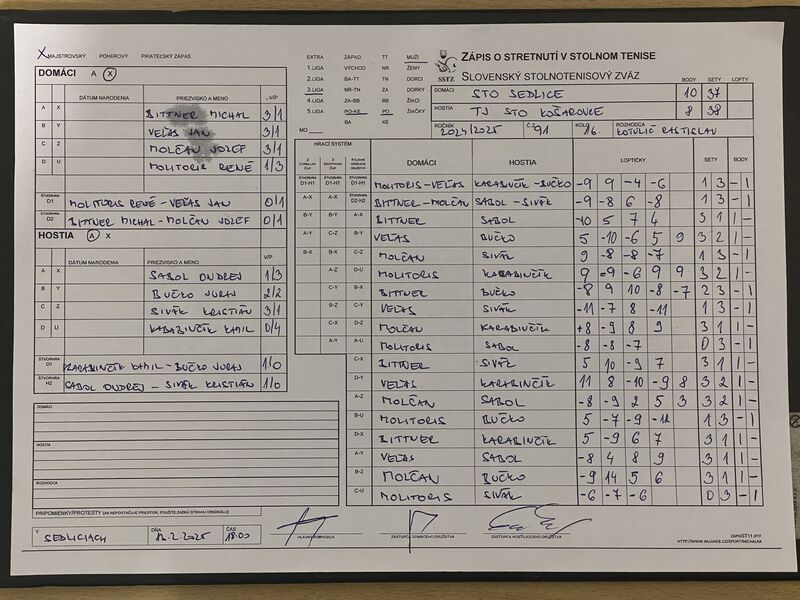 X MAJSTROVSKÝ POHÁROVÝ PRIATEĽSKÝ ZÁPAS
DOMÁCI A X
DÁTUM NARODENIA PRIEZVISKO A MENO V/P
A X BITTNER MICHAL 3/1
B Y VEĽAS JAN 3/1
C Z MOLČAN JOZEF 3/1
D U MOLITORIS RENÉ 1/3
ŠTVORHRA D1 MOLITORIS RENÉ - VEĽAS JAN 0/1
ŠTVORHRA D2 BITTNER MICHAL - MOLČAN JOZEF 0/1
HOSTIA A X
DÁTUM NARODENIA PRIEZVISKO A MENO V/P
A X SABOL ONDREJ 1/3
B Y BUČKO JURAJ 2/2
C Z SIVÁK KRISTIÁN 3/1
D U KARABINČÍK KAMIL 0/4
ŠTVORHRA KARABINČÍK KAMIL - BUČKO JURAJ 1/0
ŠTVORHRA H2 SABOL ONDREJ - SIVÁK KRISTIÁN 1/0
DOMÁCI
HOSTIA
ROZHODCA
PRIPOMIENKY/PROTESTY (AK NEPOSTAČUJE PRIESTOR, POUŽITE ZADNÚ STRANU ORIGINÁLU)
V SEDLICIACH DŇA ČAS 18:00
EXTRA ZÁPAD TT MUŽI
1.LIGA VÝCHOD NR ŽENY
2.LIGA BA-TT TN DORCI
3.LIGA NR-TN ZA DORKY
4.LIGA ZA-BB BB ŽIACI
5.LIGA PO-KE PO ŽIAČKY
BA KE
MO
SSTZ
ZÁPIS O STRETNUTÍ V STOLNOM TENISE
SLOVENSKÝ STOLNOTENISOVÝ ZVÄZ
BODY SETY LOPTY
DOMÁCI STO SEDLICE 10 37
HOSTIA TJ STO KOŠAROVCE 8 38
ROČNÍK 2024/2025 Č. 91 KOLO 16. ROZHODCA KOTULIČ RASTISLAV
HRACÍ SYSTÉM DOMÁCI HOSTIA LOPTIČKY SETY BODY
D1-H1 D1-H1 D1-H1 MOLITORIS-VEĽAS KARABINČÍK-BUČKO -9 9 -4 -6 1 3 - 1
A-X A-X D2-H2 BITTNER-MOLČAN SABOL - SIVÁK -9 -8 6 -8 1 3 - 1
B-Y B-Y A-X BITTNER SABOL -10 5 7 4 3 1 1 -
A-Y C-Z B-Y VEĽAS BUČKO 5 -10 -6 5 9 3 2 1 -
B-X B-X C-Z MOLČAN SIVÁK 9 -8 -8 -7 1 3 - 1
A-Z D-U MOLITORIS KARABINČÍK 9 -9 -6 9 9 3 2 1 -
C-Y B-X BITTNER BUČKO -8 9 10 -8 -7 2 3 - 1
B-Z C-Y VEĽAS SIVÁK -11 -7 8 -11 1 3 - 1
C-X D-Z MOLČAN KARABINČÍK 8 -9 8 9 3 1 1 -
A-Y A-U MOLITORIS SABOL -8 -8 -7 0 3 - 1
C-X BITTNER SIVÁK 5 10 -9 7 3 1 1 -
D-Y VEĽAS KARABINČÍK 11 8 -10 -9 8 3 2 1 -
A-Z MOLČAN SABOL -8 -9 2 5 3 3 2 1 -
B-U MOLITORIS BUČKO 5 -7 -9 -12 1 3 - 1
D-X BITTNER KARABINČÍK 5 -9 6 7 3 1 1 -
A-Y VEĽAS SABOL -8 4 8 9 3 1 1 -
B-Z MOLČAN BUČKO -9 14 5 6 3 1 1 -
C-U MOLITORIS SIVÁK -6 -7 -6 0 3 - 1
HLAVNÝ ROZHODCA ZÁSTUPCA DOMÁCEHO DRUŽSTVA ZÁSTUPCA HOSŤUJÚCEHO DRUŽSTVA
ZAPISST11.RTF
HTTP://WWW.MUJWEB.CZ/SPORT/MICHALKA